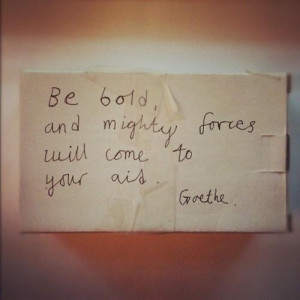 Be bold,
and mighty forces
will come to
your aid.
Goethe.